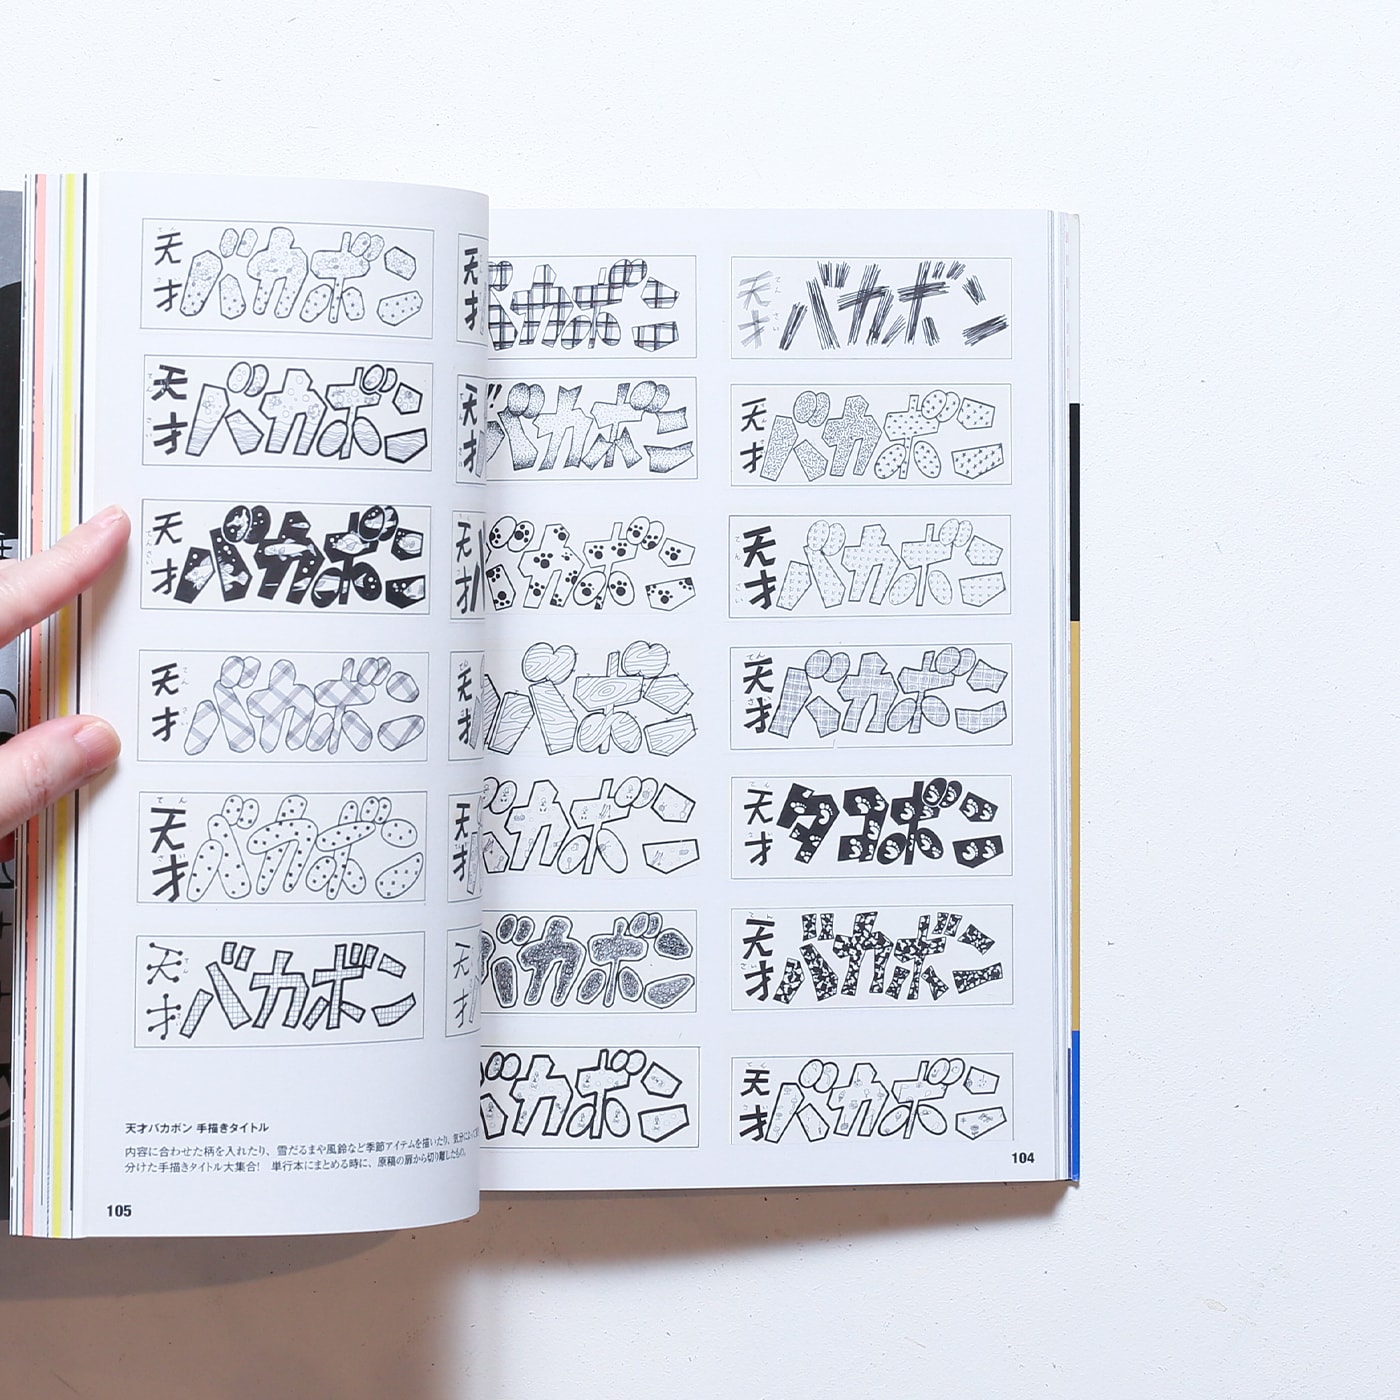 天才バカボン
天才
天才バカボン
天才
天才バカボン
天才
天才バカボン
天才
天才バカボン
天才
天才バカボン
天才
天才バカボン 手描きタイトル
内容に合わせた柄を入れたり、雪だるまや風鈴など季節アイテムを描いたり、気分によって
分けた手描きタイトル大集合! 単行本にまとめる時に、原稿の扉から切り離したもの。
105
バカボン
天才バカボン
バカボン
天才バカボン
バカボン
天才バカボン
ボン
天才バカボン
バカボン
天才タコボン
バカボン
天才バカボン
バカボン
天才バカボン
104